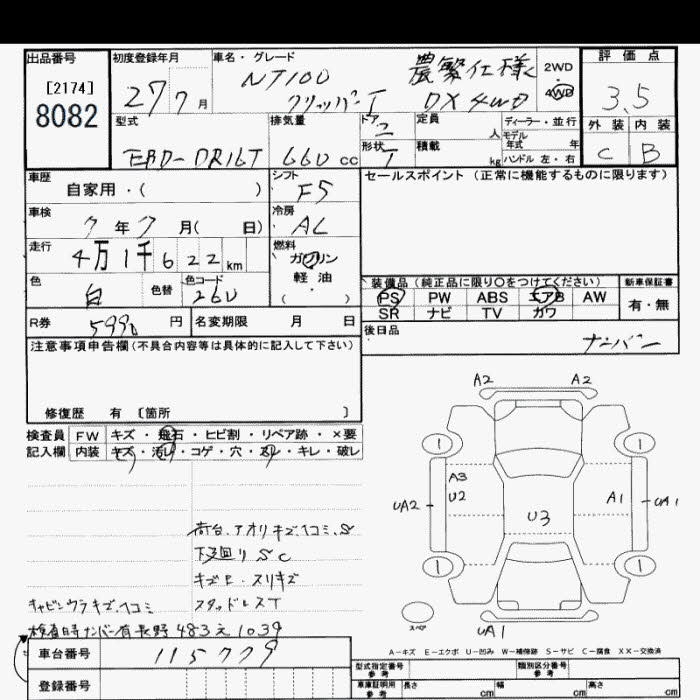 出品番号 初度登録年月 車名・グレード 評価点
[2174] 8082
27 7月
NT100 農繁仕様 2WD
クリッパーT DX 4WD 4WD
3.5
型式 排気量 ドア 2 定員 人 ディーラー・並行 モデル年式 年 外装 内装
EBD-DR16T 660cc 形状 T 積載 kg ハンドル 左・右 C B
車歴 シフト セールスポイント (正常に機能するものに限ります)
自家用・( ) F5
車検 冷房
7年7月( 日) AC
走行 燃料
4万1千622km ガソリン
色 色替 色コード 軽油
白 26U ( )
装備品 (純正品に限り○をつけてください) 新車保証書
PS PW ABS エアB AW 有・無
SR ナビ TV カワ
R券 5990円 名変期限 月 日
後日品 ナンバー
注意事項申告欄(不具合内容等は具体的に記入して下さい)
修復歴 有 [箇所 ]
検査員 FW キズ・飛石・ヒビ割・リペア跡・×要
記入欄 内装 キズ・汚レ・コゲ・穴・スレ・キレ・破レ
A2 A2
1 1
A3
U2
UA2 A1 UA1
U3
1 1
スペア
UA1
荷台、アオリキズ、ヘコミ、S
下廻りSC
キズE・スリキズ
キャビンウラキズ、ヘコミ スタッドレスT
検査時ナンバー有長野483え1039
A-キズ E-エクボ U-凹み W-補修跡 S-サビ C-腐食 XX-交換済
車台番号 115779
登録番号
型式指定番号 参考 類別区分番号 参考
車庫証明用 参考 長さ cm 幅 cm 高さ cm